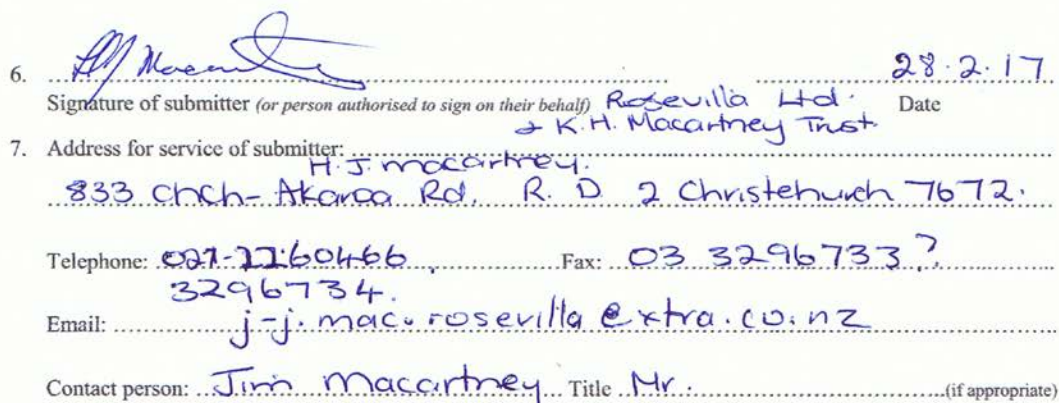 6. 28.2.17
Signature of submitter (or person authorised to sign on their behalf) Rosevilla Ltd. Date
& K.H. Macartney Trust
7. Address for service of submitter:
H.J. macartney.
833 ChCh-Akaroa Rd, R.D 2 Christchurch 7672.
Telephone: Fax: 03 3296733?
3296734.
Email: j-j.mac.rosevilla@xtra.co.nz
Contact person: Jim Macartney Title Mr. (if appropriate)